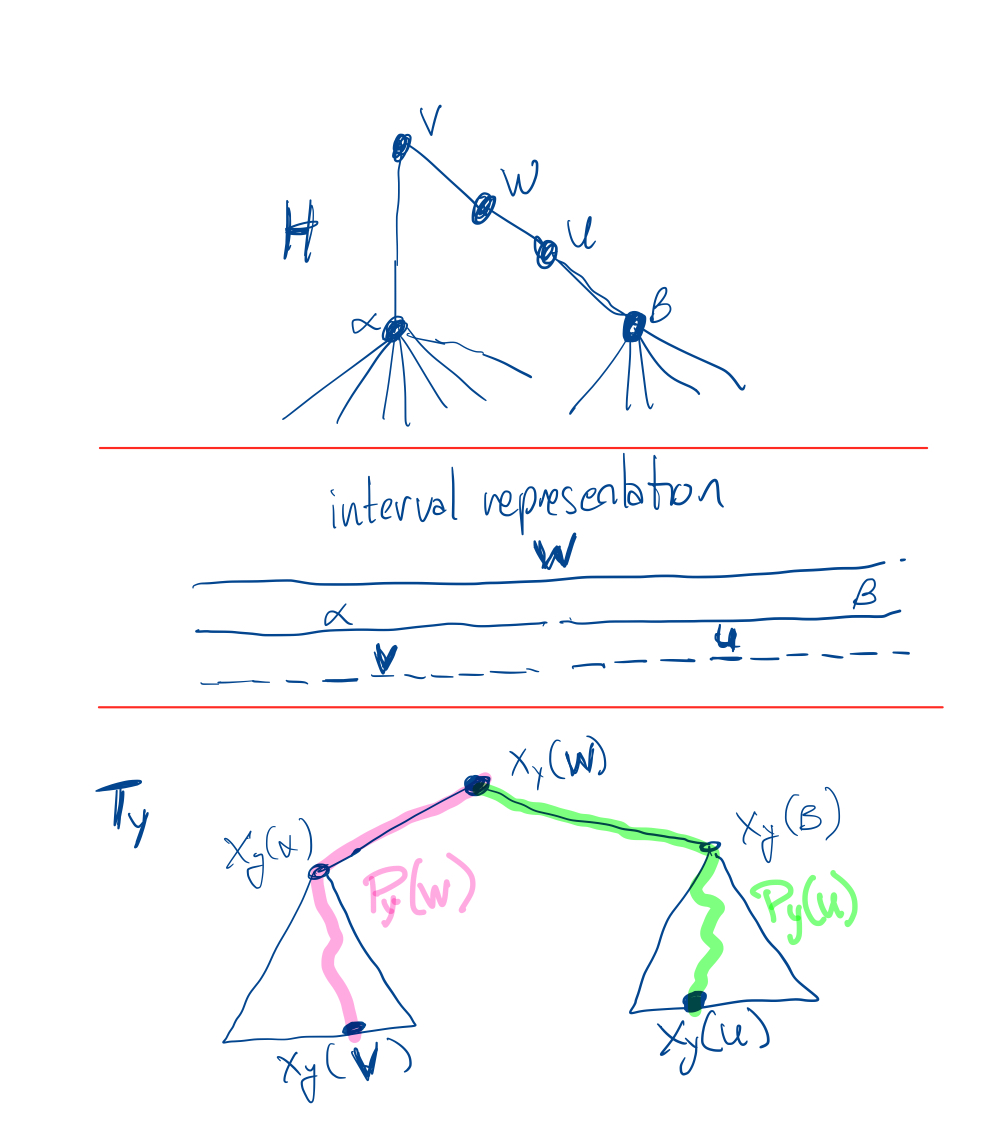 V
W
H
u
α
β
interval representation
W
α
β
V
u
x_y(W)
T_y
x_y(α)
x_y(β)
P_y(W)
P_y(u)
x_y(V)
x_y(u)